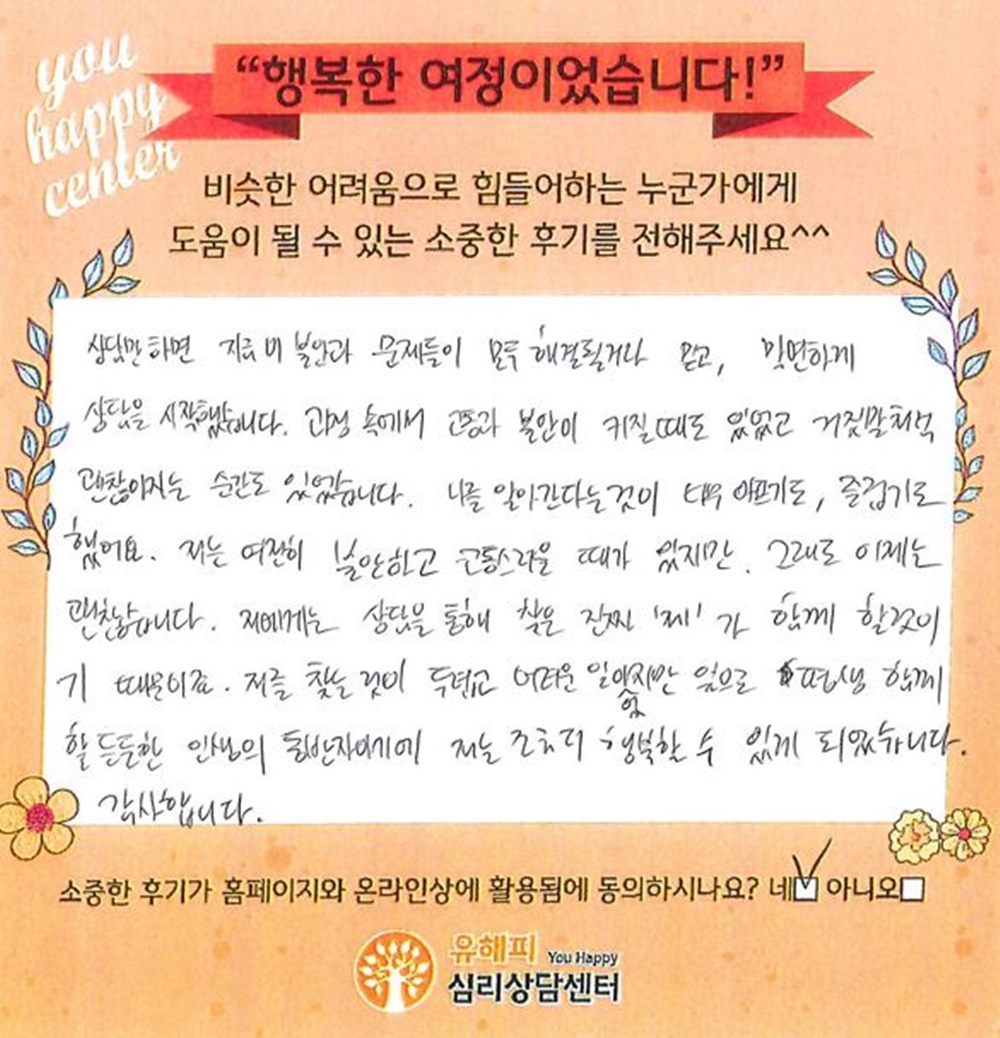 you
happy
center
“행복한 여정이었습니다!”
비슷한 어려움으로 힘들어하는 누군가에게
도움이 될 수 있는 소중한 후기를 전해주세요^^
상담만하면 지금의 불안과 문제들이 모두 해결될거라 믿고,
상담을 시작했습니다. 과정 속에서 고통과 불안이 커질때도 있었고 거짓말처럼
괜찮아지는 순간도 있었습니다. 나를 알아간다는것이 매우 아프기도, 즐겁기도
했어요. 저는 여전히 불안하고 고통스러울 때가 있지만. 그래도 이제는
괜찮습니다. 저에게는 상담을 통해 찾은 진짜 '제'가 함께 할것이
기 때문이죠. 저를 찾는 것이 두렵고 어려운 일이었지만 앞으로 평생 함께
할 든든한 인생의 동반자이기에 저는 조금더 행복할 수 있게 되었습니다.
감사합니다.
소중한 후기가 홈페이지와 온라인상에 활용됨에 동의하시나요? 네☑ 아니오□
유해피 You Happy
심리상담센터